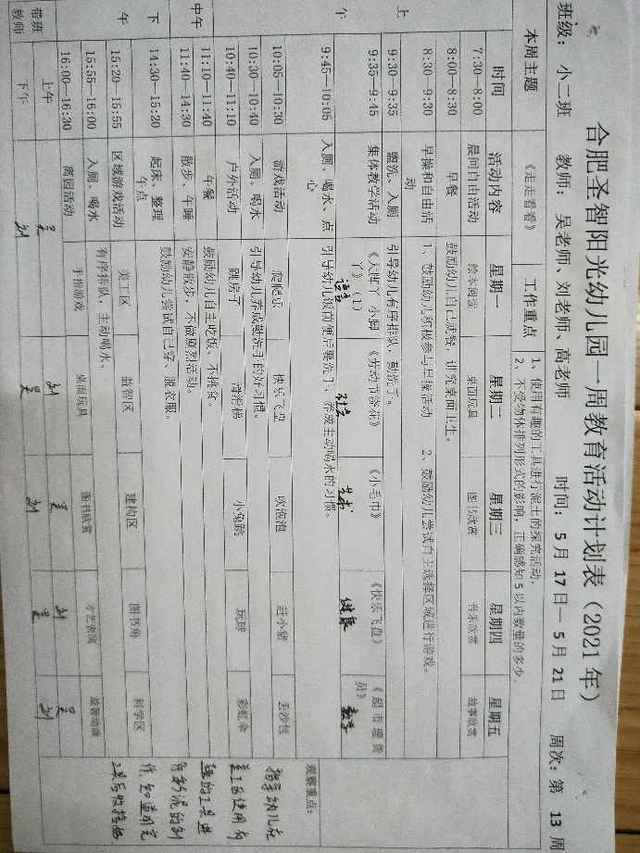 合肥圣智阳光幼儿园一周教育活动计划表（2021 年）
班级： 小二班 教师： 吴老师、刘老师、高老师 时间： 5 月 17 日— 5 月 21 日 周次：第 13 周
本周主题 《走走看看》 工作重点 1、使用有趣的工具进行泥土的探究活动。
2、不受物体排列形式的影响，正确感知 5 以内数量的多少。
时间 活动内容 星期一 星期二 星期三 星期四 星期五
上午
7:30—8:00 晨间自由活动 绘本阅读 桌面玩具 图书欣赏 音乐欣赏 故事欣赏
8:00—8:30 早餐 鼓励幼儿自己进餐，讲究桌面卫生。
8:30—9:30 早操和自由活动 1、鼓励幼儿积极参与早操活动 2、鼓励幼儿尝试自主选择区域进行游戏。
9:30—9:35 盥洗、入厕 引导幼儿有序排队，勤洗手。
9:35—9:45 集体教学活动 《大脚丫 小脚丫》（1） 《小毛巾》 《快乐飞盘》 《超市理货员》
语言 社会 艺术 健康 数学
9:45—10:05 入厕、喝水、点心 引导幼儿饭前便后要洗手，养成主动喝水的习惯。
10:05—10:30 游戏活动 爬爬乐 快乐飞盘 吹泡泡 赶小猪 丢沙包
10:30—10:40 入厕、喝水 引导幼儿养成勤洗手的好习惯。
10:40—11:10 户外活动 跳房子 滑滑梯 小兔跳 玩球 彩虹伞
中午
11:10—11:40 午餐 鼓励幼儿自主吃饭、不挑食。
11:40—14:30 散步、午睡 安静散步，不做剧烈活动。
下午
14:30—15:20 起床、整理 午点 鼓励幼儿尝试自己穿、脱衣服。
15:20—15:55 区域游戏活动 美工区 益智区 建构区 图书角 科学区
15:55—16:00 入厕、喝水 有序排队，主动喝水。
16:00—16:30 离园活动 手指游戏 桌面玩具 图书欣赏 才艺表演
带班教师 上午 吴 刘 吴 刘 吴
下午 刘 吴 刘 吴 刘
观察重点：
指导幼儿在
美工区使用